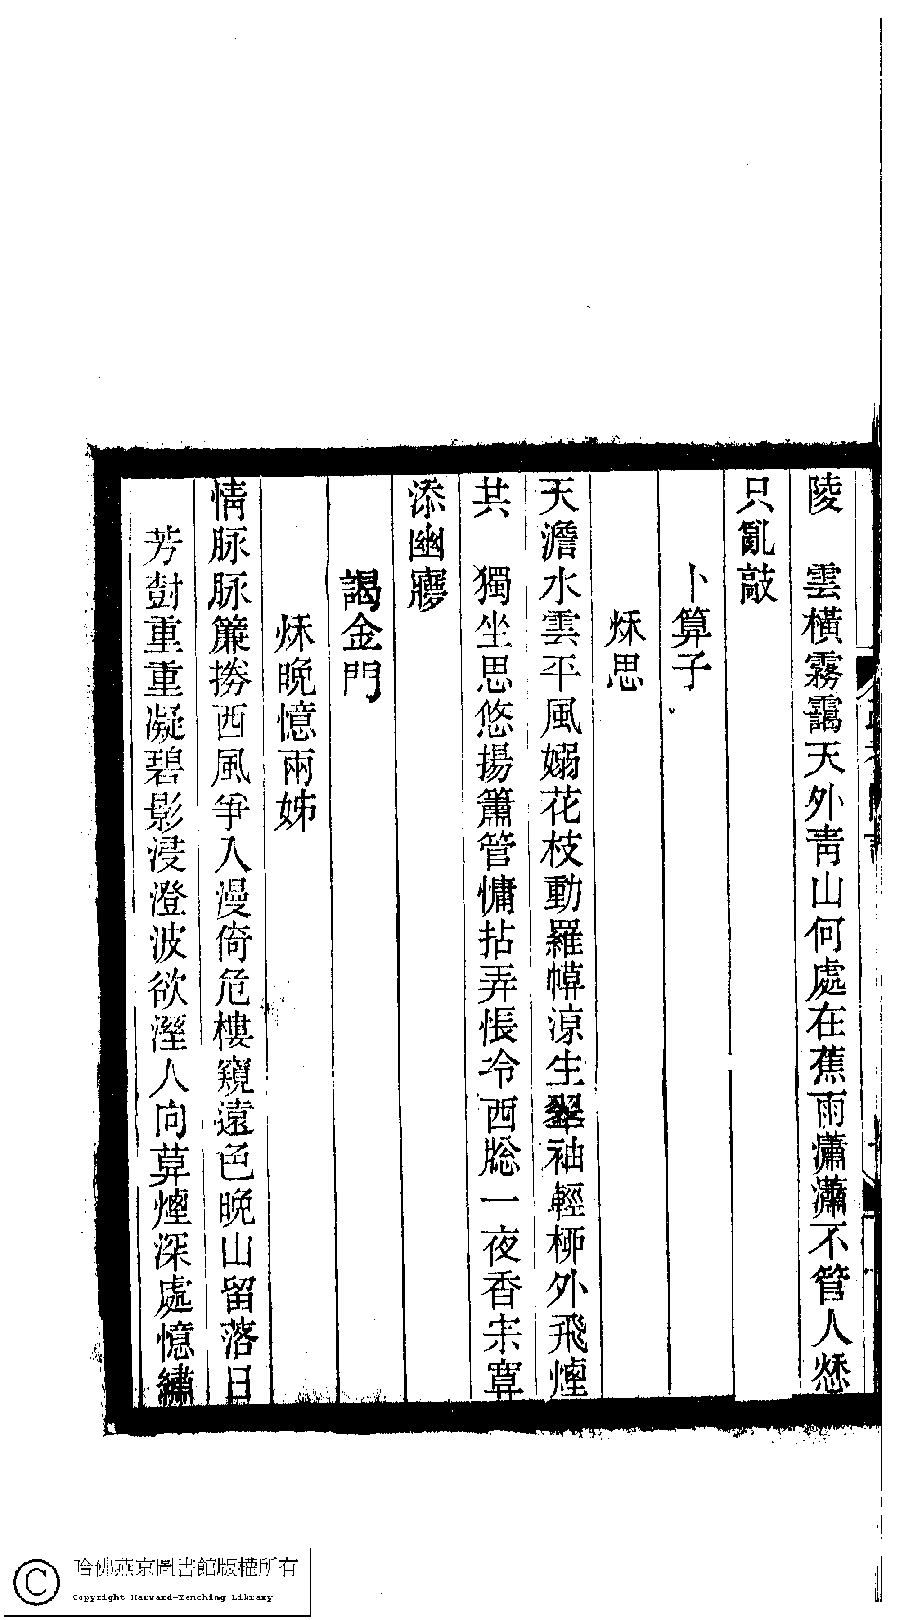 陵　雲橫霧靄天外靑山何處在蕉雨瀟瀟不管人愁
只亂敲
卜算子
秌思
天澹水雲平風嫋花枝動羅幃涼生翠袖輕桺外飛煙
共　獨坐思悠揚簫管慵拈弄悵冷西牕一夜香宋寞
添幽㝱
謁金門
秌晚憶兩姊
情脉脉簾捲西風爭入漫倚危樓窺遠色晚山留落日
芳對重重凝碧影浸澄波欲溼人向莫煙深處憶繡
哈佛燕京圖書館版權所有
Copyright Harvard-Yenching Library